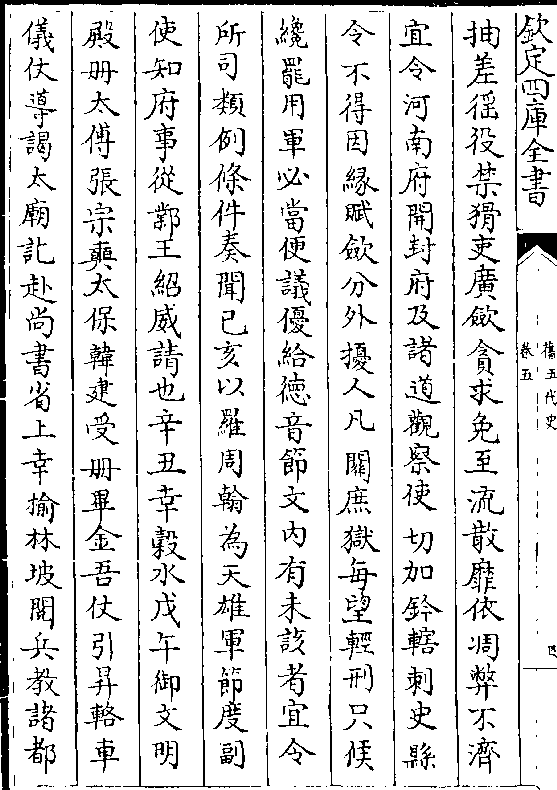 欽定四庫全書
舊五代史
卷五
四
抽差徭役禁猾吏廣歛貪求免至流散靡依凋弊不濟
宜令河南府開封府及諸道觀察使切加鈐轄刺史縣
令不得因緣賦歛分外擾人凡關庶獄每望輕刑只候
纔罷用軍必當便議優給德音節文内有未該者宜令
所司類例條件奏聞已亥以羅周翰為天雄軍節度副
使知府事從鄴王紹威請也辛丑幸穀水戊午御文明
殿冊太傅張宗奭太保韓建受冊畢金吾仗引昇輅車
儀仗導謁太廟訖赴尚書省上幸榆林坡閱兵教諸都